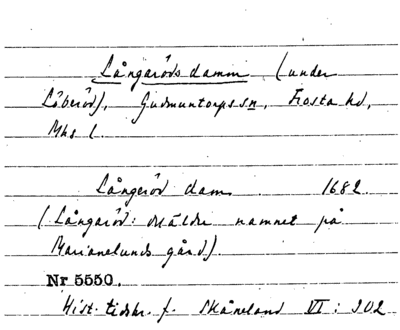 Långaröds damm (under
Löberöd), Gudmuntorps sn, Frosta hd,
Mhs l.
Långeröd dam 1682.
(Långaröd: äldre namnet på
Marianelunds gård).
Nr 5550.
Hist. tidskr. f. Skåneland VI: 302